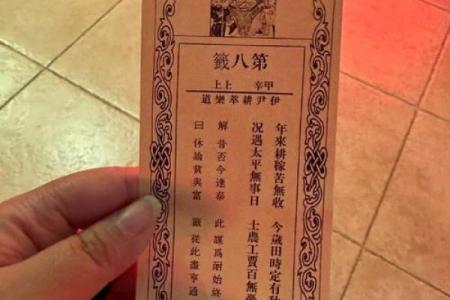 第八籤
甲辛 上上
伊尹耕莘樂道
年來耕稼苦無收 今歲田時定有
况遇太平無事日 士農工賈百無
解 昔否今逢泰 此 謀爲耐始終
曰 休論貧與富 籤 從此盡亨通